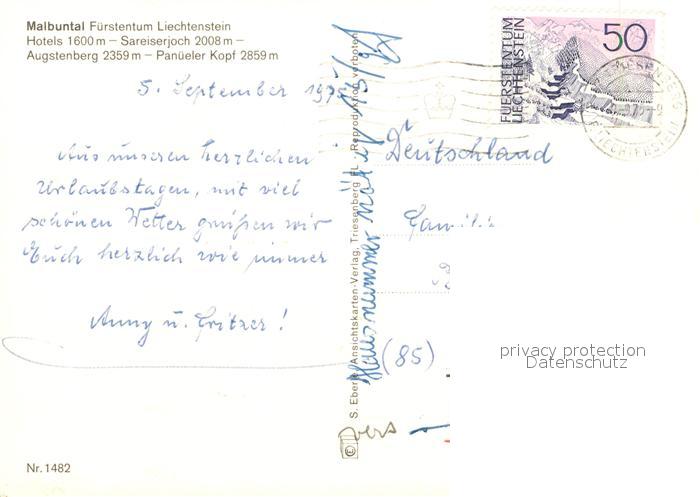 Malbuntal Fürstentum Liechtenstein
Hotels 1600 m – Sareiserjoch 2008 m –
Augstenberg 2359 m – Panüeler Kopf 2859 m
5. September
Aus unseren herzlichen
Urlaubstagen, mit viel
schönen Wetter grüßen wir
Euch herzlich wie immer
Anny u. Fritzer!
Nr. 1482
© S. Eberle, Ansichtskarten-Verlag, Triesenberg FL. Reproduktion verboten
Hausnummer nötig
FÜRSTENTUM
LIECHTENSTEIN
50
LIECHTENSTEIN
Deutschland
(85)
privacy protection
Datenschutz